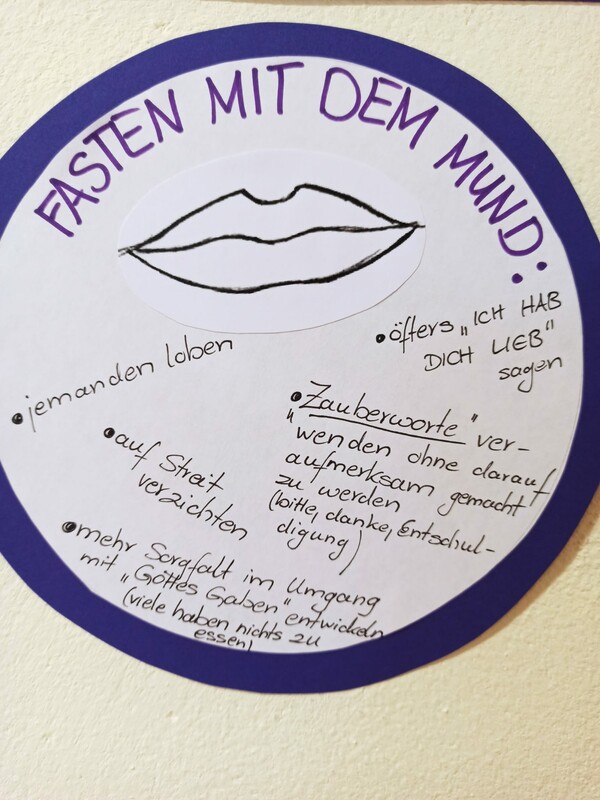 FASTEN MIT DEM MUND:
• öfters „ICH HAB
DICH LIEB"
sagen
• jemanden loben
• „Zauberworte" ver-
wenden ohne darauf
aufmerksam gemacht
zu werden
(bitte, danke, Entschul-
digung)
• auf Streit
verzichten
• mehr Sorgfalt im Umgang
mit „Gottes Gaben" entwickeln
(viele haben nichts zu
essen)